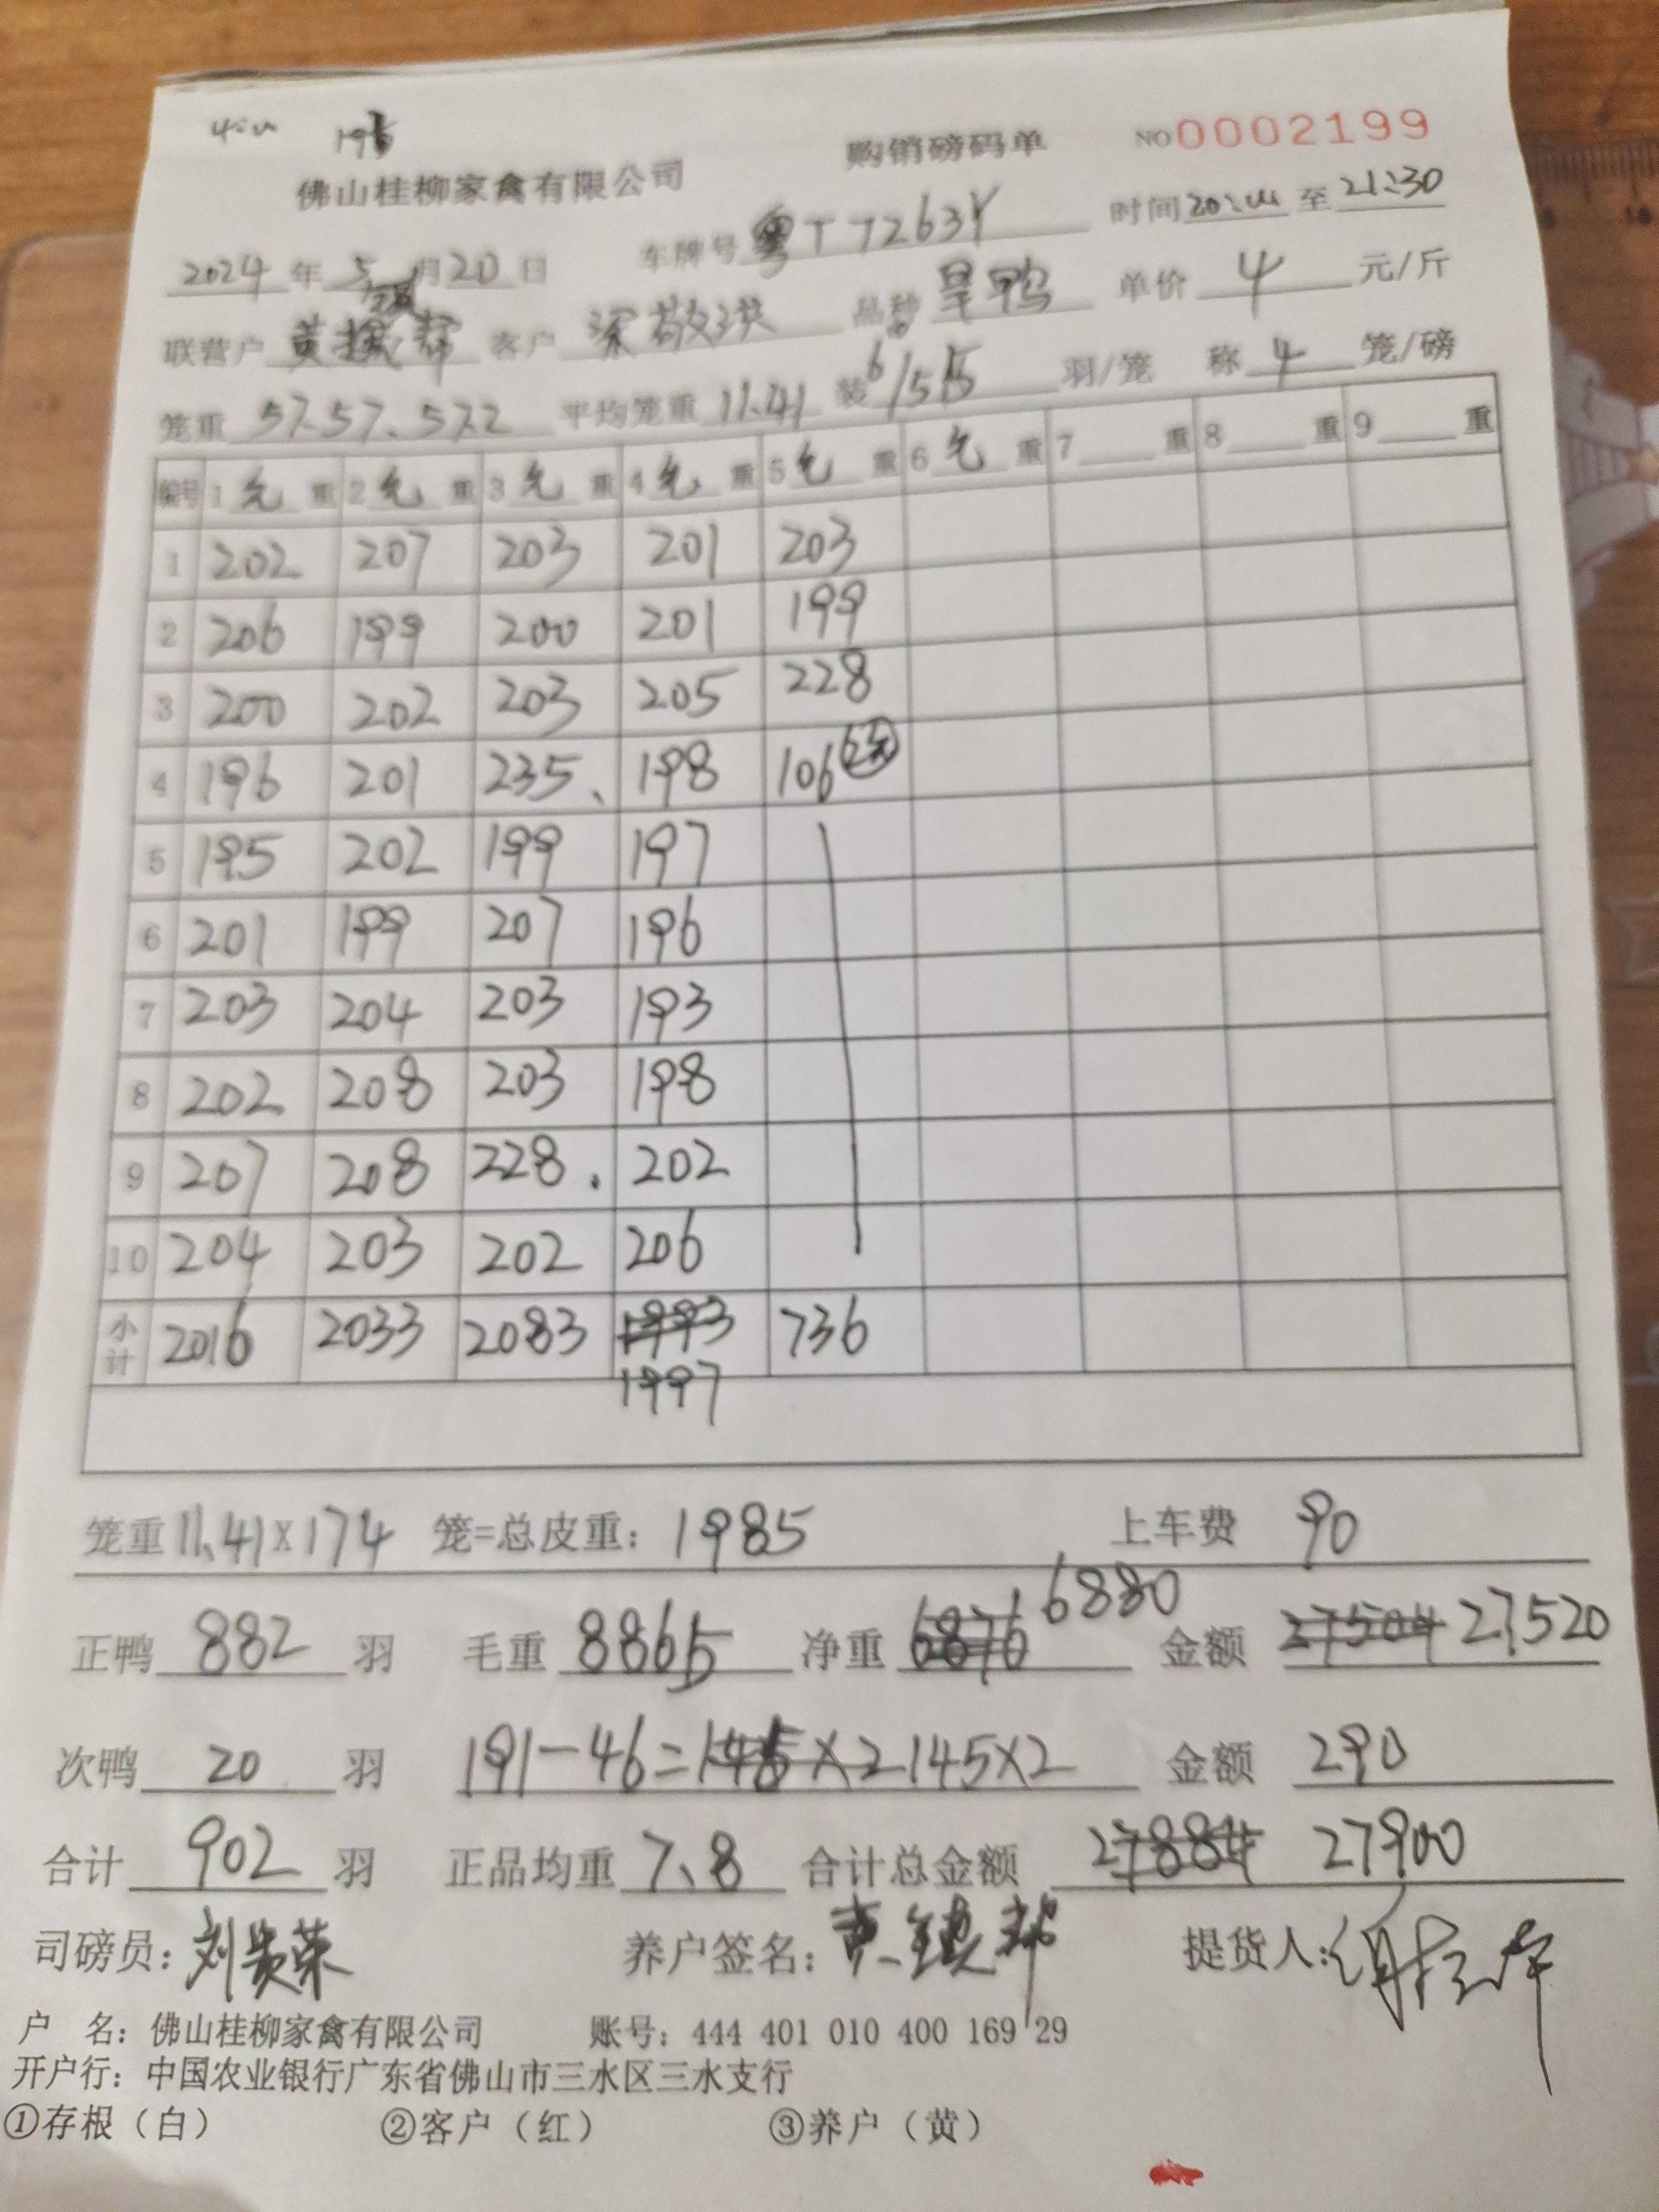 195
佛山桂柳家禽有限公司 购销磅码单 NO 0002199
2024 年 5 月 20 日 车牌号 粤T T263Y 时间 至 21:30
联营户 黄 客户 梁敬洪 品种 旱鸭 单价 4 元/斤
笼重 57.57.57.2 平均笼重 11.41 装 6/5 羽/笼 称 4 笼/磅
编号 1 毛 重 2 毛 重 3 毛 重 4 毛 重 5 毛 重 6 毛 重 7 重 8 重 9 重
1 202 207 203 201 203
2 206 199 200 201 199
3 200 202 203 205 228
4 196 201 235 198 106
5 195 202 199 197
6 201 199 207 196
7 203 204 203 193
8 202 208 203 198
9 207 208 228 202
10 204 203 202 206
小计 2016 2033 2083 1993 736
1997
笼重 11.41×174 笼=总皮重: 1985 上车费 90
正鸭 882 羽 毛重 8865 净重 6876 6880 金额 27504 27520
次鸭 20 羽 191-46=146×2 145×2 金额 290
合计 902 羽 正品均重 7.8 合计总金额 27884 27900
司磅员: 刘贵荣 养户签名: 提货人:
户 名: 佛山桂柳家禽有限公司 账号: 444 401 010 400 169 29
开户行: 中国农业银行广东省佛山市三水区三水支行
①存根(白) ②客户(红) ③养户(黄)